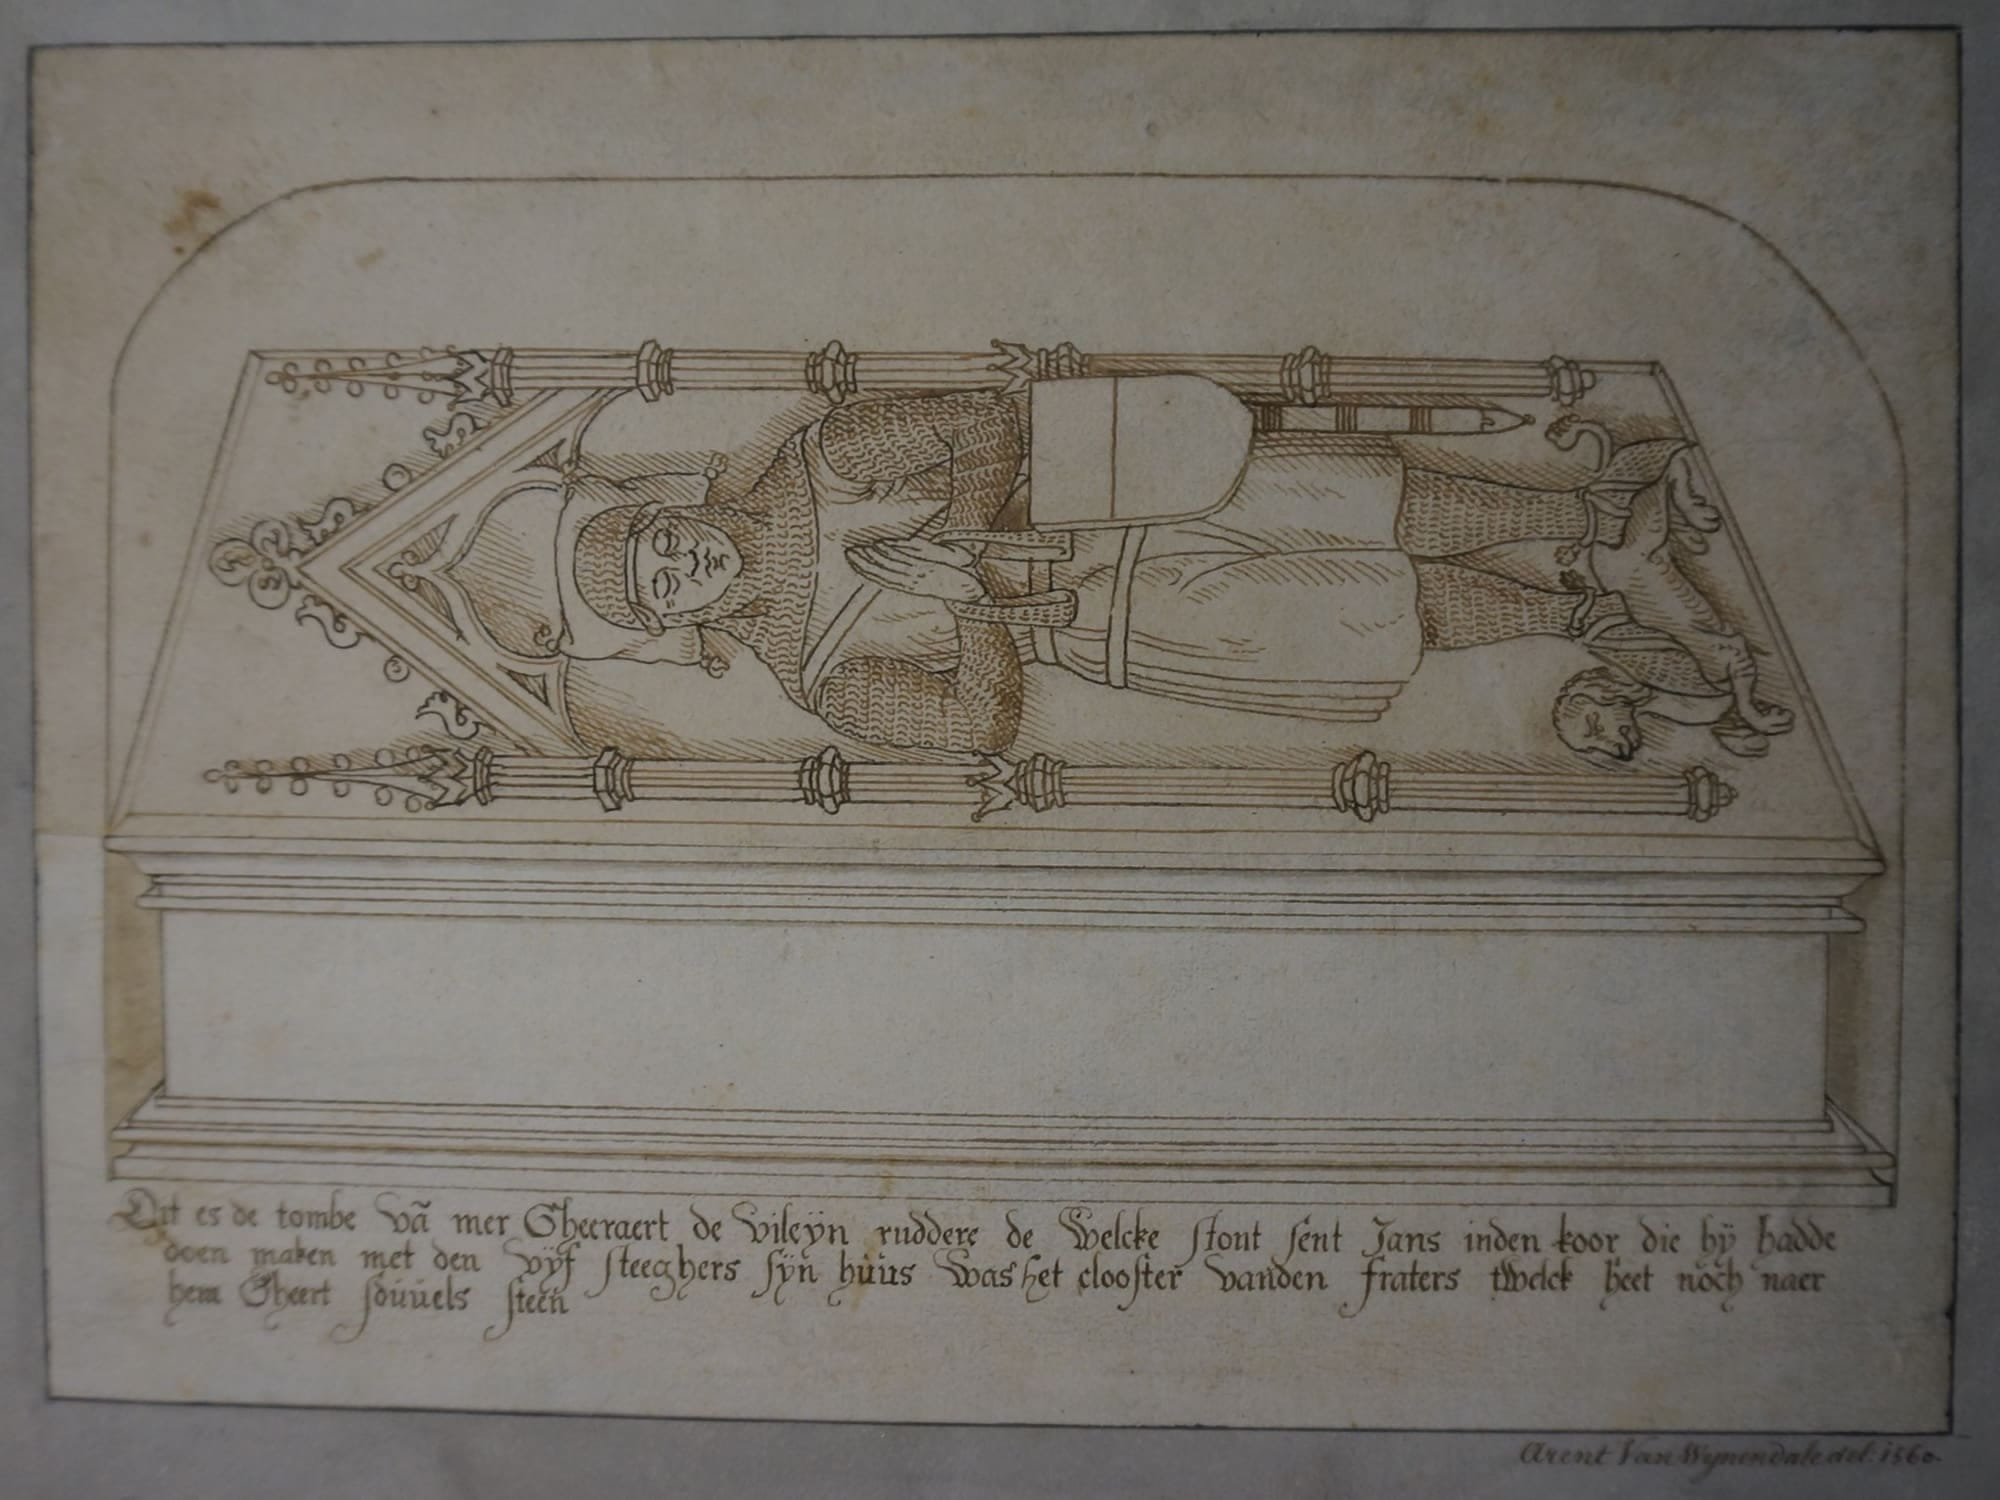 Dit es de tombe vã mer Gheeraert de vileÿn ruddere de Welcke stont sent Jans inden koor die hÿ hadde
doen maken met den vÿf steeghers sÿn hùùs Was het clooster vanden fraters tWelck heet noch naer
hem Gheert sdùùels steen
Arent Van Wynendale del. 1560.